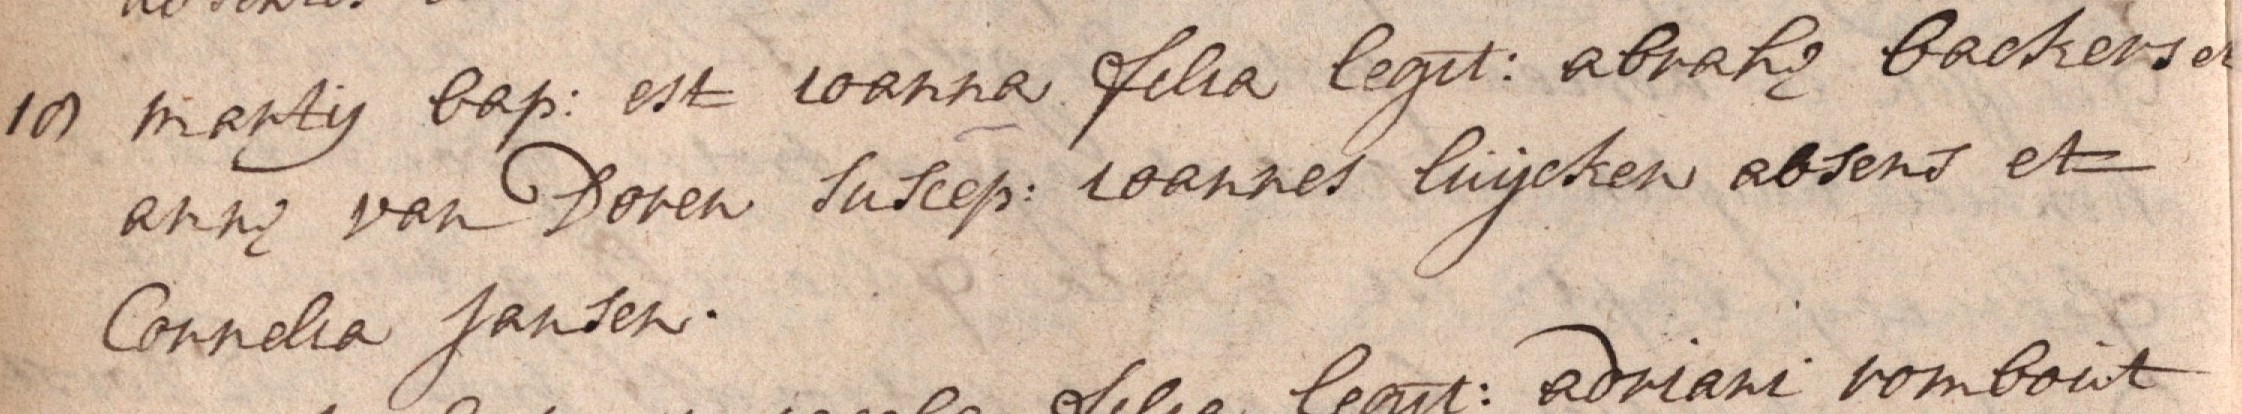 18 martij bap: est ioanna filia legit: abrahę backers et
annę van Doren suscep: ioannes luijcken absens et
Cornelia Jansen.
filia legit: adriani rombout